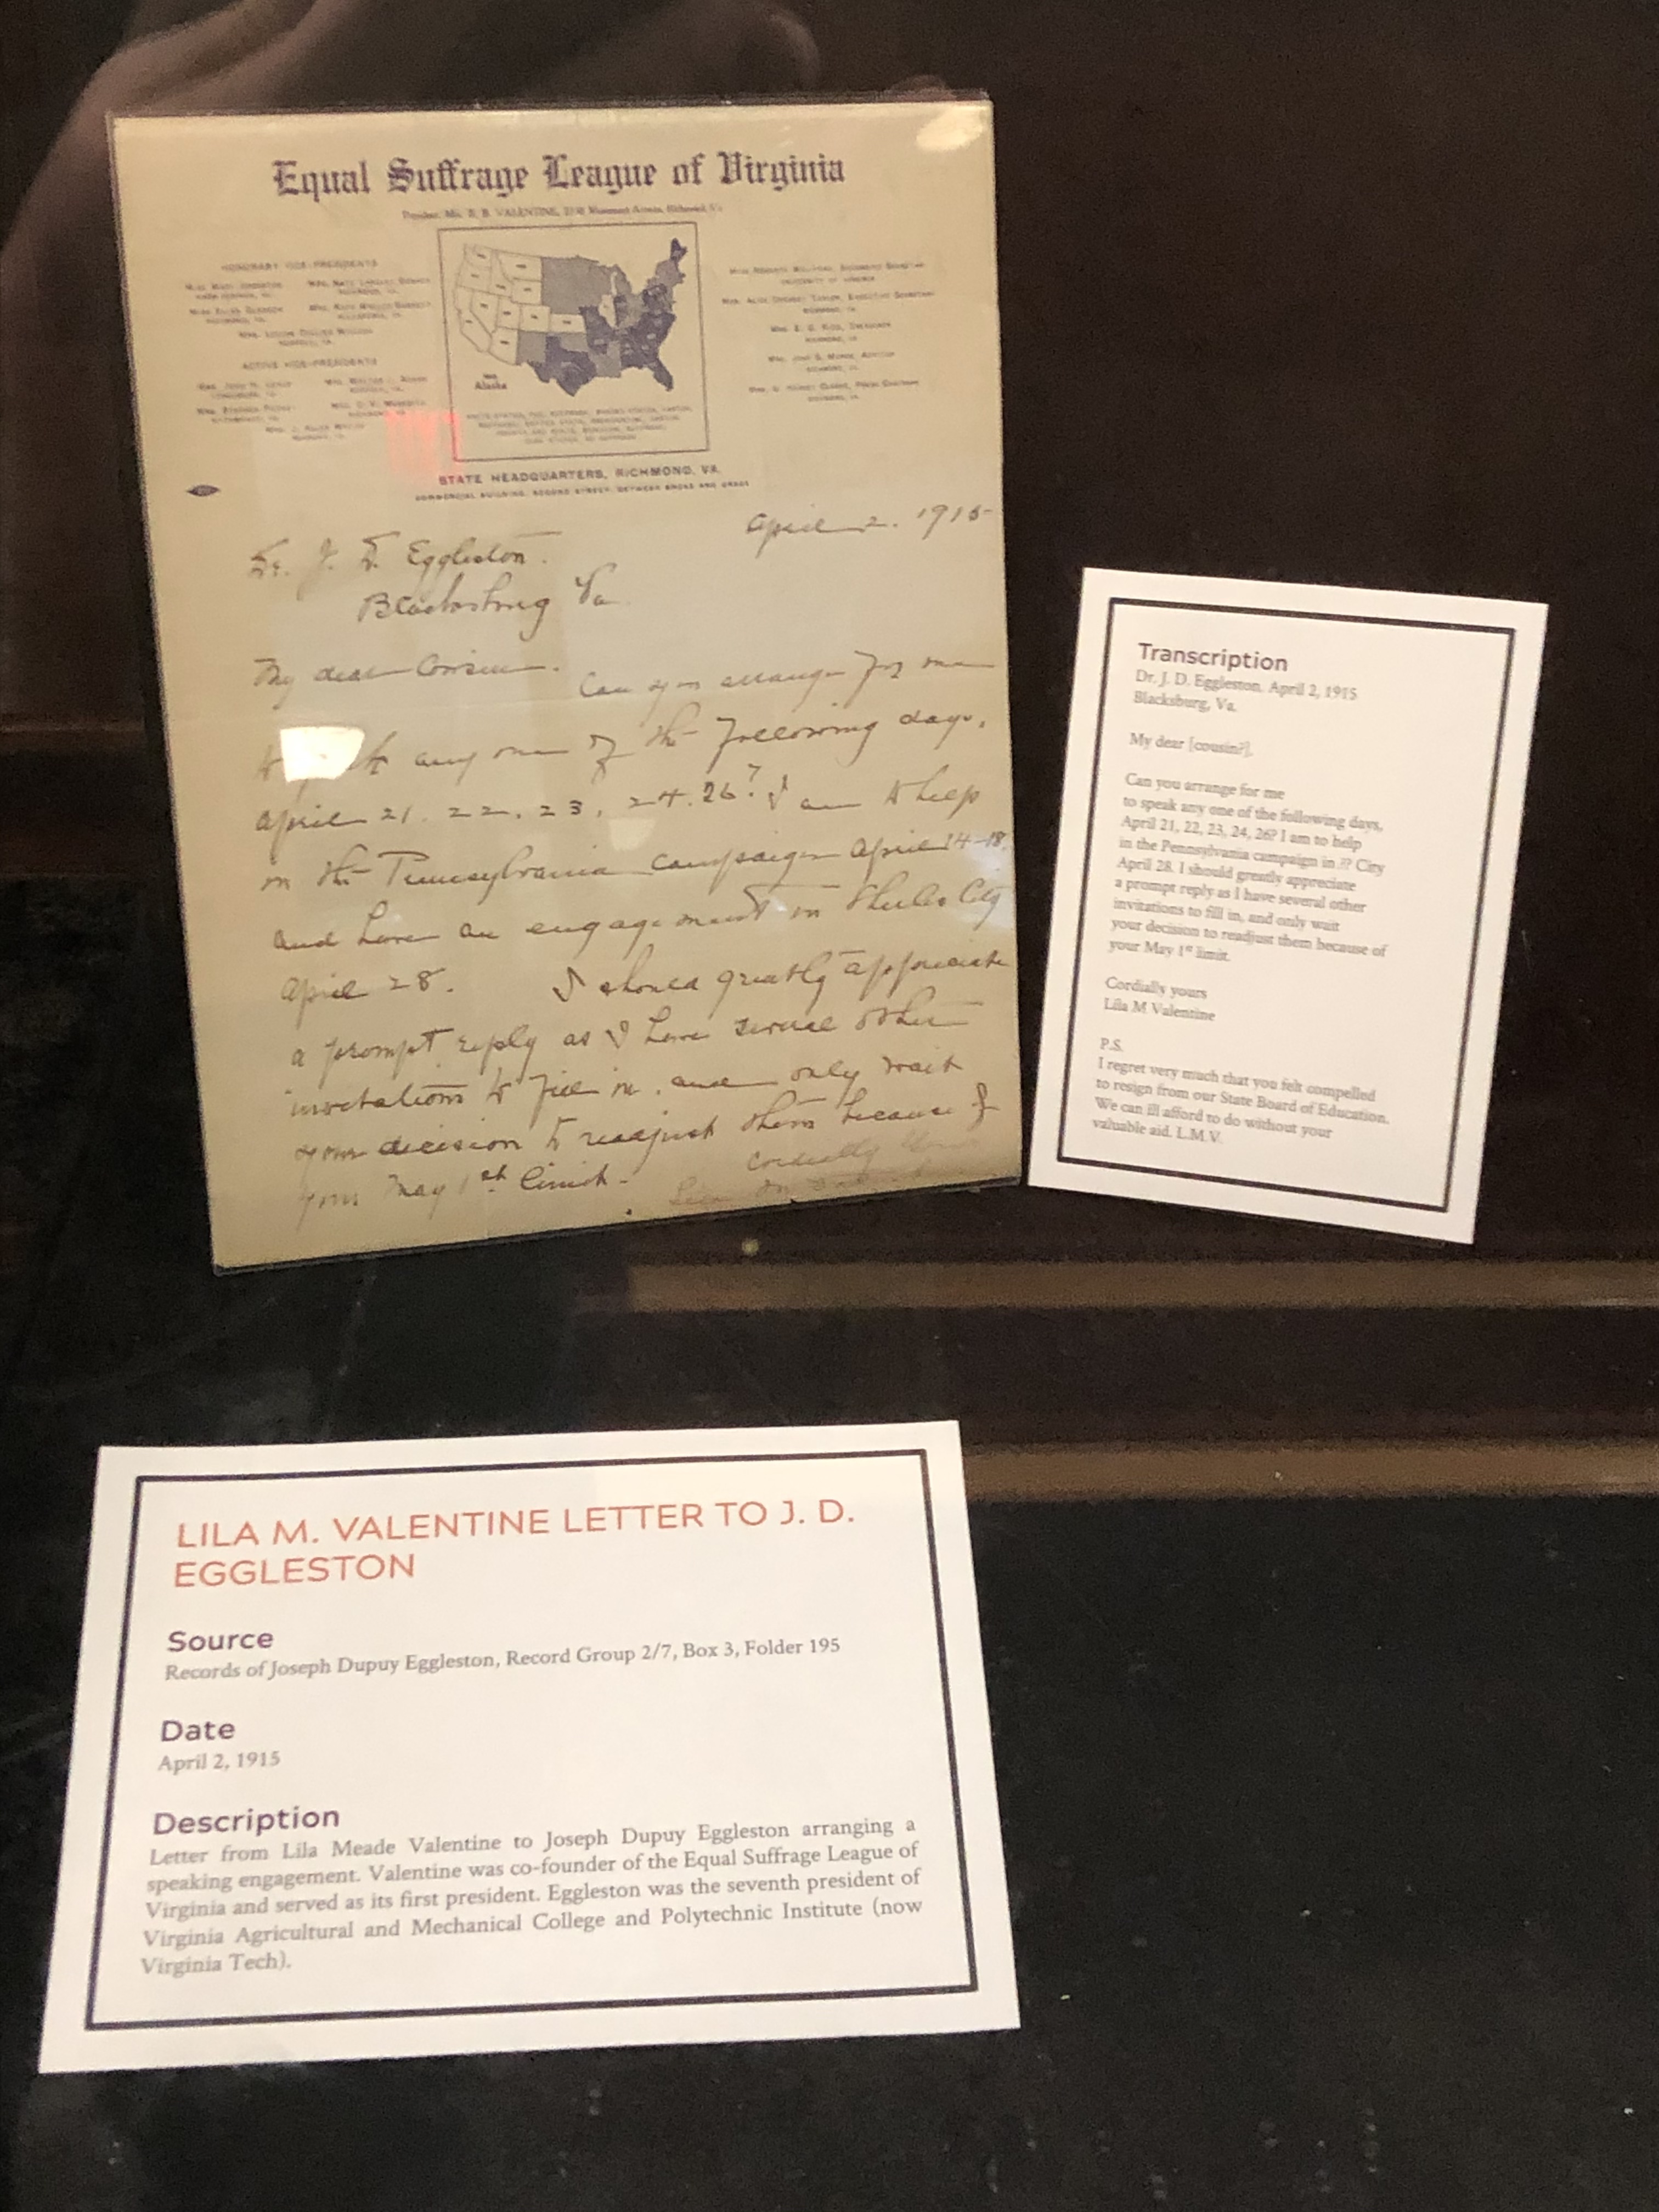 Equal Suffrage League of Virginia
President, Mrs. B. B. VALENTINE, Monument Avenue, Richmond, Va.
HONORARY VICE-PRESIDENTS
ACTIVE VICE-PRESIDENTS
Alaska
STATE HEADQUARTERS, RICHMOND, VA.
COMMERCIAL BUILDING, SECOND STREET, BETWEEN BROAD AND GRACE
April 2. 1915
Dr. J. D. Eggleston.
Blacksburg Va.
My dear Cousin.
Can you arrange for me
to any one of the following days,
April 21. 22. 23, 24. 26? I am to help
in the Pennsylvania campaign April 14-18,
and have an engagement in City
April 28. I should greatly appreciate
a prompt reply as I have several other
invitations to fill in, and only wait
your decision to readjust them because of
your May 1st limit.
Cordially yours
Transcription
Dr. J. D. Eggleston. April 2, 1915
Blacksburg, Va.
My dear [cousin?],
Can you arrange for me
to speak any one of the following days,
April 21, 22, 23, 24, 26? I am to help
in the Pennsylvania campaign in ?? City
April 28. I should greatly appreciate
a prompt reply as I have several other
invitations to fill in, and only wait
your decision to readjust them because of
your May 1st limit.
Cordially yours
Lila M Valentine
P.S.
I regret very much that you felt compelled
to resign from our State Board of Education.
We can ill afford to do without your
valuable aid. L.M.V.
LILA M. VALENTINE LETTER TO J. D.
EGGLESTON
Source
Records of Joseph Dupuy Eggleston, Record Group 2/7, Box 3, Folder 195
Date
April 2, 1915
Description
Letter from Lila Meade Valentine to Joseph Dupuy Eggleston arranging a
speaking engagement. Valentine was co-founder of the Equal Suffrage League of
Virginia and served as its first president. Eggleston was the seventh president of
Virginia Agricultural and Mechanical College and Polytechnic Institute (now
Virginia Tech).